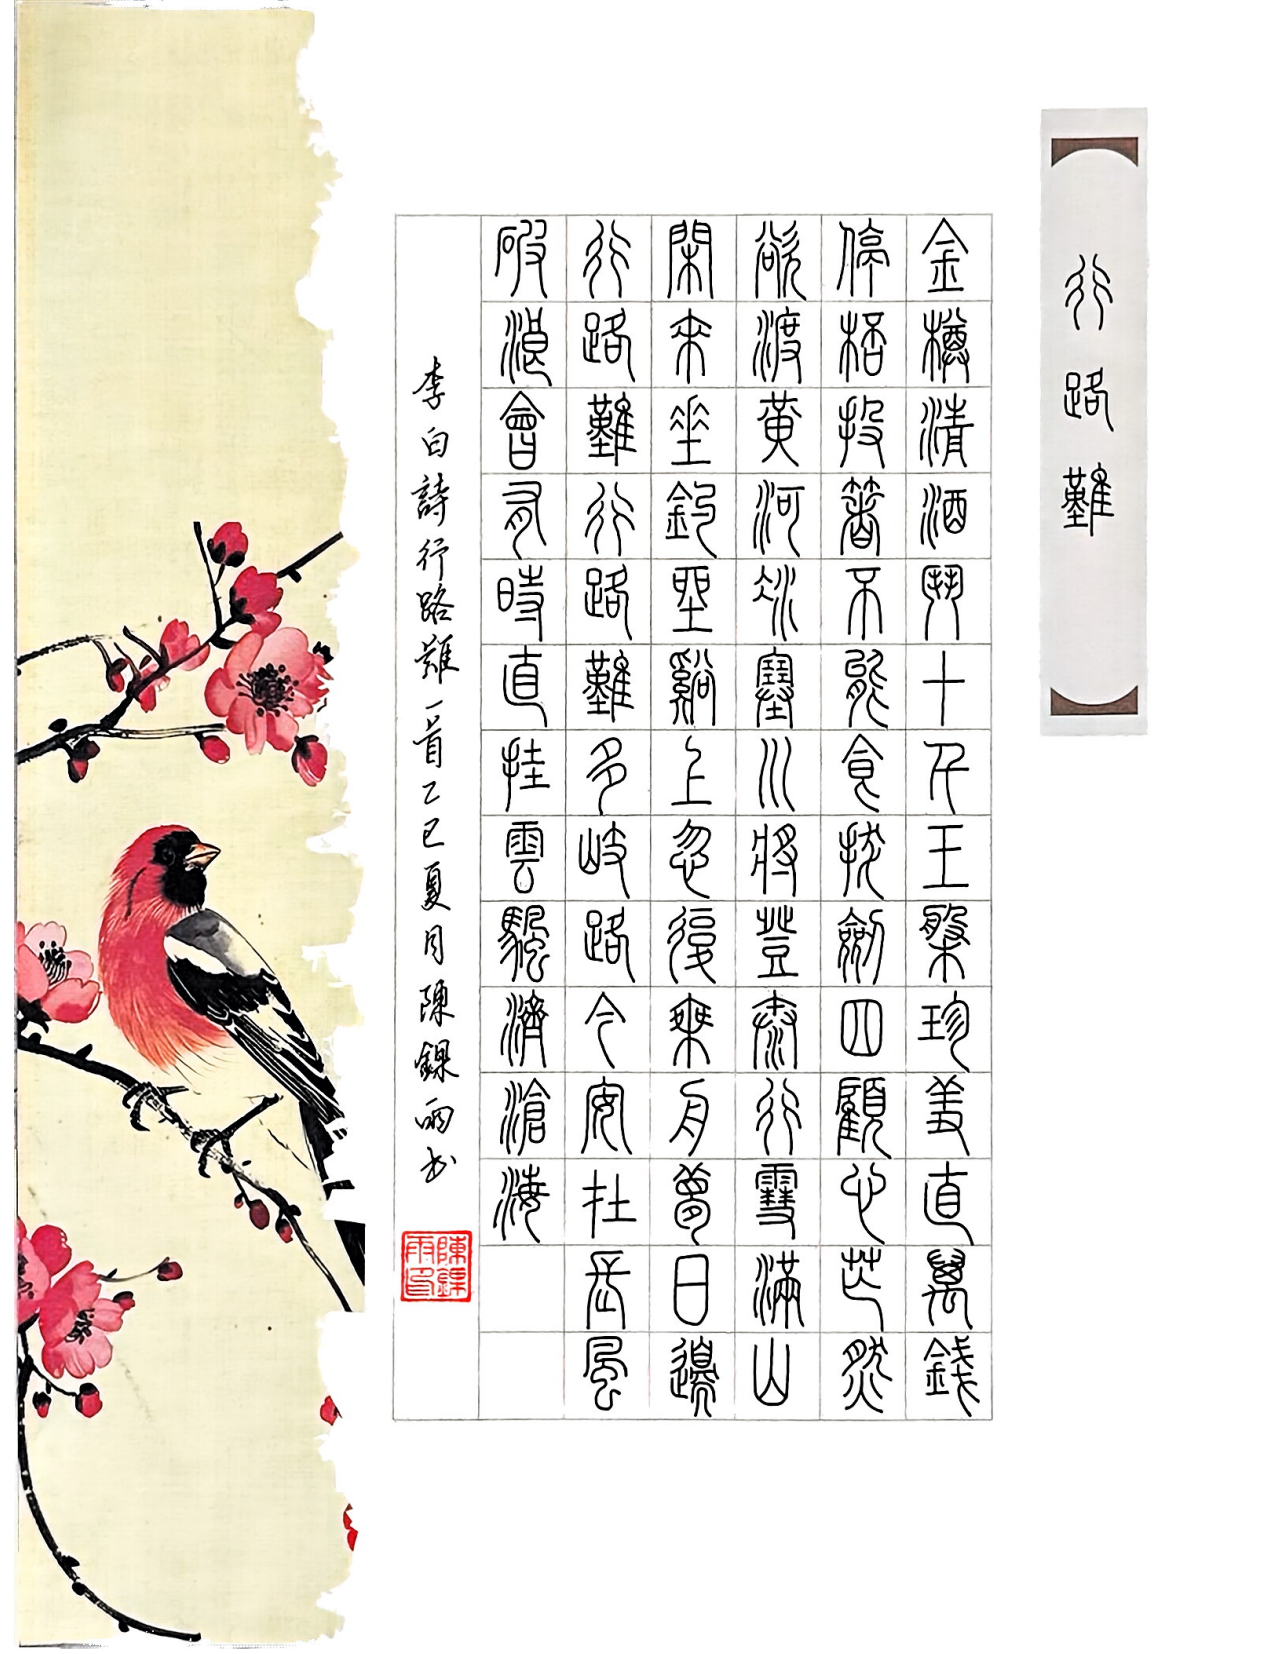 行路難
金樽清酒鬥十千玉盤珍羞直萬錢
停桮投箸不能食拔劍四顧心芒然
欲渡黃河冰塞川將登泰行雪滿山
閑來坐釣碧谿上忽復乘舟夢日邊
行路難行路難多岐路今安在長風
破浪會有時直挂雲颿濟滄海
李白詩行路難一首乙巳夏月陳鏍雨书
陳鏍雨印